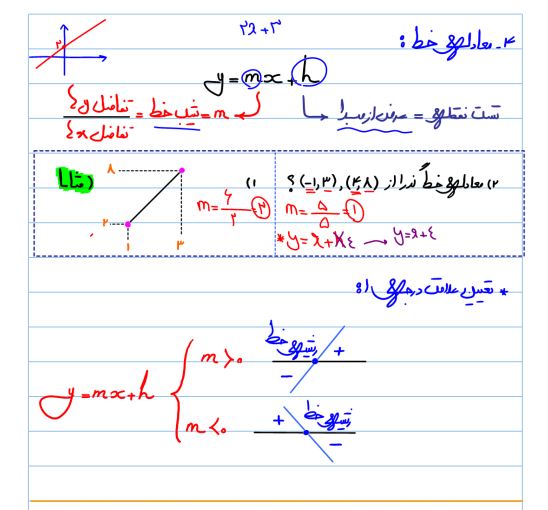 ۴_ معادله‌ی خط :
۲x+۳
۳
y=mx+h
تست نقطه‌ی = عرض از مبدا
m = شیب خط = تفاضل y ها / تفاضل x ها
مثال)
۱)
۸
۲
۱
۳
m=۶/۲=۳
۲) معادله‌ی خط گذرا از (۴,۸), (-۱,۳) ؟
m=۵/۵=۱
*y=x+۴ → y=x+۴
* تعیین علامت درجه‌ی ۱:
y=mx+h
m>۰
ریشه‌ی خط
+
−
m<۰
+
ریشه‌ی خط
−